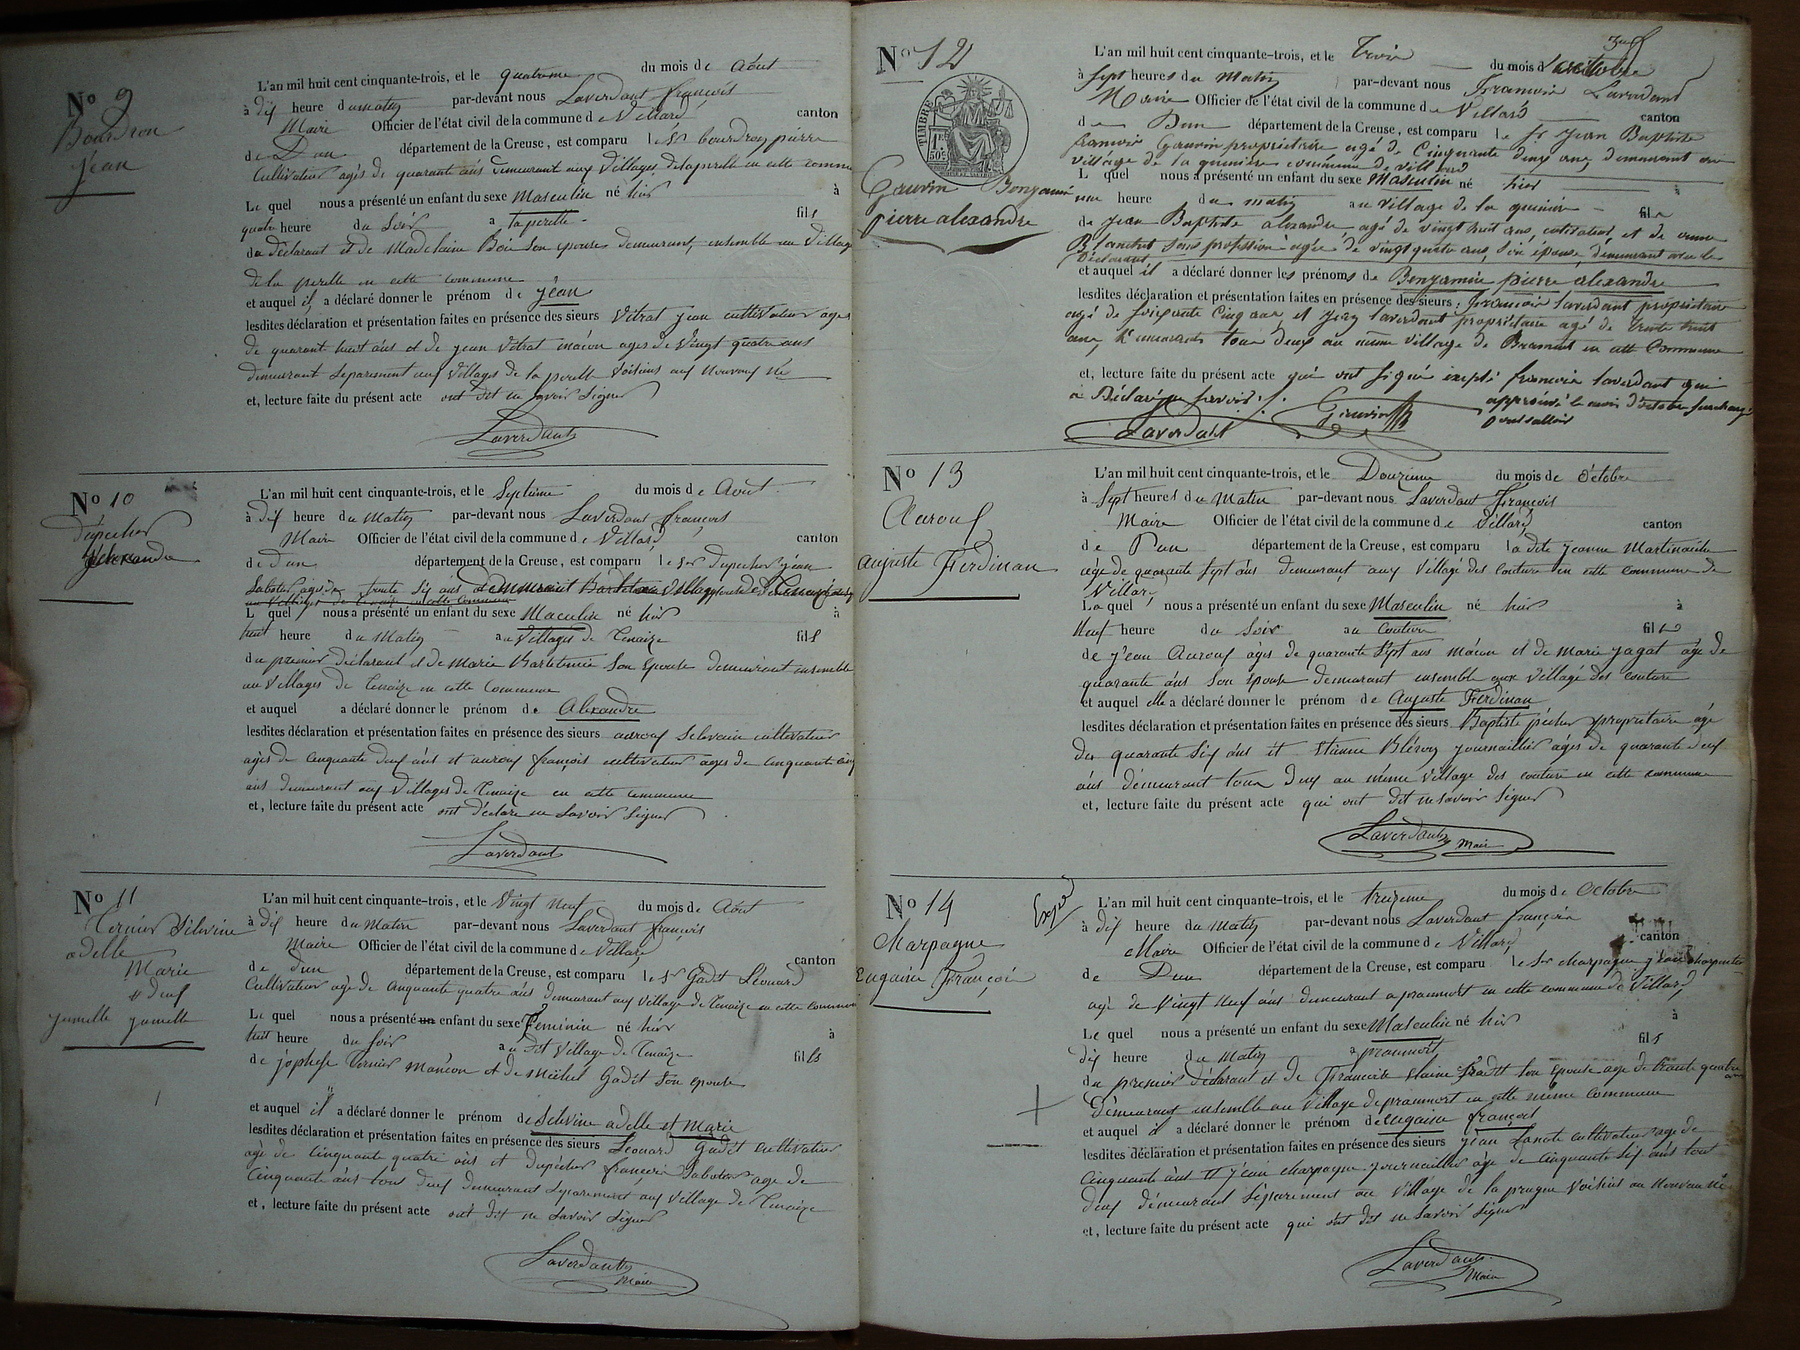 No 9
Bourdron
jean
L'an mil huit cent cinquante-trois, et le quatrieme du mois de Août
à dix heure du matin par-devant nous Laverdant françois
Maire Officier de l'état civil de la commune de Villard canton
de Dun département de la Creuse, est comparu le Sr bourdron pierre
Cultivateur agés de quarant ans demeurant aux Villages de la perelle en cette commune
Le quel nous a présenté un enfant du sexe Masculin né hier à
quatre heure du Soir a la perelle fils
du déclarant et de Madelaine Boi Son epouse demeurant ensemble au Village
de la perelle en cette commune
et auquel il a déclaré donner le prénom de jean
lesdites déclaration et présentation faites en présence des sieurs Vitrat jean cultivateur ages
de quarant huit ans et de jean Vitrat maçon ages de Vingt quatre ans
demeurant Séparement aux Villages de la perelle Voisins aux Nouveux né
et, lecture faite du présent acte ont dit ne Savoir Signer
Laverdant
No 10
Dupechor
Alexandre
L'an mil huit cent cinquante-trois, et le Septieme du mois de Aout
à dix heure du Matin par-devant nous Laverdant françois
Maire Officier de l'état civil de la commune de Villard canton
de dun département de la Creuse, est comparu le Sr Dupechor jean
Sabotier agés de trente Six ans
Le quel nous a présenté un enfant du sexe Maculin né hier à
huit heure du Matin au Villages de Tenaize fils
du premier déclarant et de Marie Bartelemie Son Epouse demeurant ensemble
au Villages de Tenaize en cette Commune
et auquel a déclaré donner le prénom de Alexandre
lesdites déclaration et présentation faites en présence des sieurs aurouf Selvain cultivateur
agés de cinquante deux ans et aurouf françois cultivateur ages de cinquante cinq
ans demeurant aux Villages de Tenaize en cette commune
et, lecture faite du présent acte ont déclare ne Savoir Signer
Laverdant
No 11
Ternier Silevine
adelle
Marie
deux
jumelle jumelle
L'an mil huit cent cinquante-trois, et le Vingt Neuf du mois de Août
à dix heure du Matin par-devant nous Laverdant françois
Maire Officier de l'état civil de la commune de Villard canton
de dun département de la Creuse, est comparu le Sr Gadet Léonard
Cultivateur age de Cinquante quatre ans demeurant aux Village de Tenaize en cette commune
Le quel nous a présenté un enfant du sexe Feminin né hier à
huit heure du Soir au dit Village de Tenaize fils
de jophese Ternier Maneon et de Michel Gadet Son epouse
et auquel il a déclaré donner le prénom de Selevine adelle et Marie
lesdites déclaration et présentation faites en présence des sieurs Léonard Gadet Cultivateur
age de Cinquante quatre ans et Dupéchor françois Sabotier age de
Cinquante ans tous deux demeurant Séparement aux Village de Tenaize
et, lecture faite du présent acte ont dit ne Savoir Signer
Laverdant
Maire
No 12
TIMBRE
1F.
50c.
Gauvin Benjamin
pierre alexandre
L'an mil huit cent cinquante-trois, et le Trois du mois d'octobre
à Sept heures du Matin par-devant nous François Laverdant
Maire Officier de l'état civil de la commune de Villard canton
de Dun département de la Creuse, est comparu le Sr Jean Baptiste
françois Gauvin propriétaire agé de Cinquante deux ans, demeurant au
village de la quiniere commune de Villard
L quel nous a présenté un enfant du sexe Masculin né hier à
une heure du matin au Village de la quiniere fils
de Jean Baptiste alexandre agé de vingt huit ans, cultivateur, et de anne
Blanchet Sans profession agée de vingt quatre ans, son épouse, demeurant avec le
déclarant
et auquel il a déclaré donner les prénoms de Benjamin pierre alexandre
lesdites déclaration et présentation faites en présence des sieurs, François Laverdant propriétaire
agé de soixante Cinq ans, et jean Laverdant propriétaire agé de trente huit
ans, demeurants tous deux au même Village de Bramont en cette Commune
et, lecture faite du présent acte qui ont signé excepté françois Laverdant qui
a Déclaré ne savoir /.
approuvé le mois d'octobre surchargé
Laverdant Gauvin
No 13
Aurouf
auguste Ferdinan
L'an mil huit cent cinquante-trois, et le Douzieme du mois de Octobre
à Sept heures du Matin par-devant nous Laverdant François
Maire Officier de l'état civil de la commune de Villard canton
de Dun département de la Creuse, est comparu la dite jeanne Martinaitre
agée de quarante Sept ans demeurant aux Village des couture en cette commune de
Villard
La quel nous a présenté un enfant du sexe Masculin né hier à
Neuf heure du Soir au Couture fils
de jean Aurouf ages de quarante Sept ans macon et de marie jagat age de
quarante ans Son Epouse demeurant ensemble aux Village des couture
et auquel elle a déclaré donner le prénom de Auguste Ferdinan
lesdites déclaration et présentation faites en présence des sieurs Baptiste péchor propriétaire age
de quarante Six ans et etienne Bléron journaillier agés de quarante deux
ans demeurant tous deux au même Village des couture en cette commune
et, lecture faite du présent acte qui ont dit ne Savoir Signer
Laverdant Maire
No 14
Marpagne
Eugaine François
L'an mil huit cent cinquante-trois, et le treizieme du mois de Octobre
à dix heure du Matin par-devant nous Laverdant françois
Maire Officier de l'état civil de la commune de Villard canton
de Dun département de la Creuse, est comparu le Ser Marpagne
agé de Vingt Neuf ans demeurant a praumort en cette commune de Villard
Le quel nous a présenté un enfant du sexe Masculin né hier à
dix heure du Matin a praumort fils
du premier déclarant et de Francoise Son epouse age de trante quatre ans
Démeurant ensemble au Village de praumort en cette même commune
et auquel il a déclaré donner le prénom de eugaine françois
lesdites déclaration et présentation faites en présence des sieurs jean Lanote cultivateur age de
Cinquante ans et jean Marpagne journaillier age de Cinquante Six ans tous
deux démeurant Séparement au Village de la prugne Voisins au Nouveau né
et, lecture faite du présent acte qui ont dit ne Savoir Signer
Laverdant
Maire